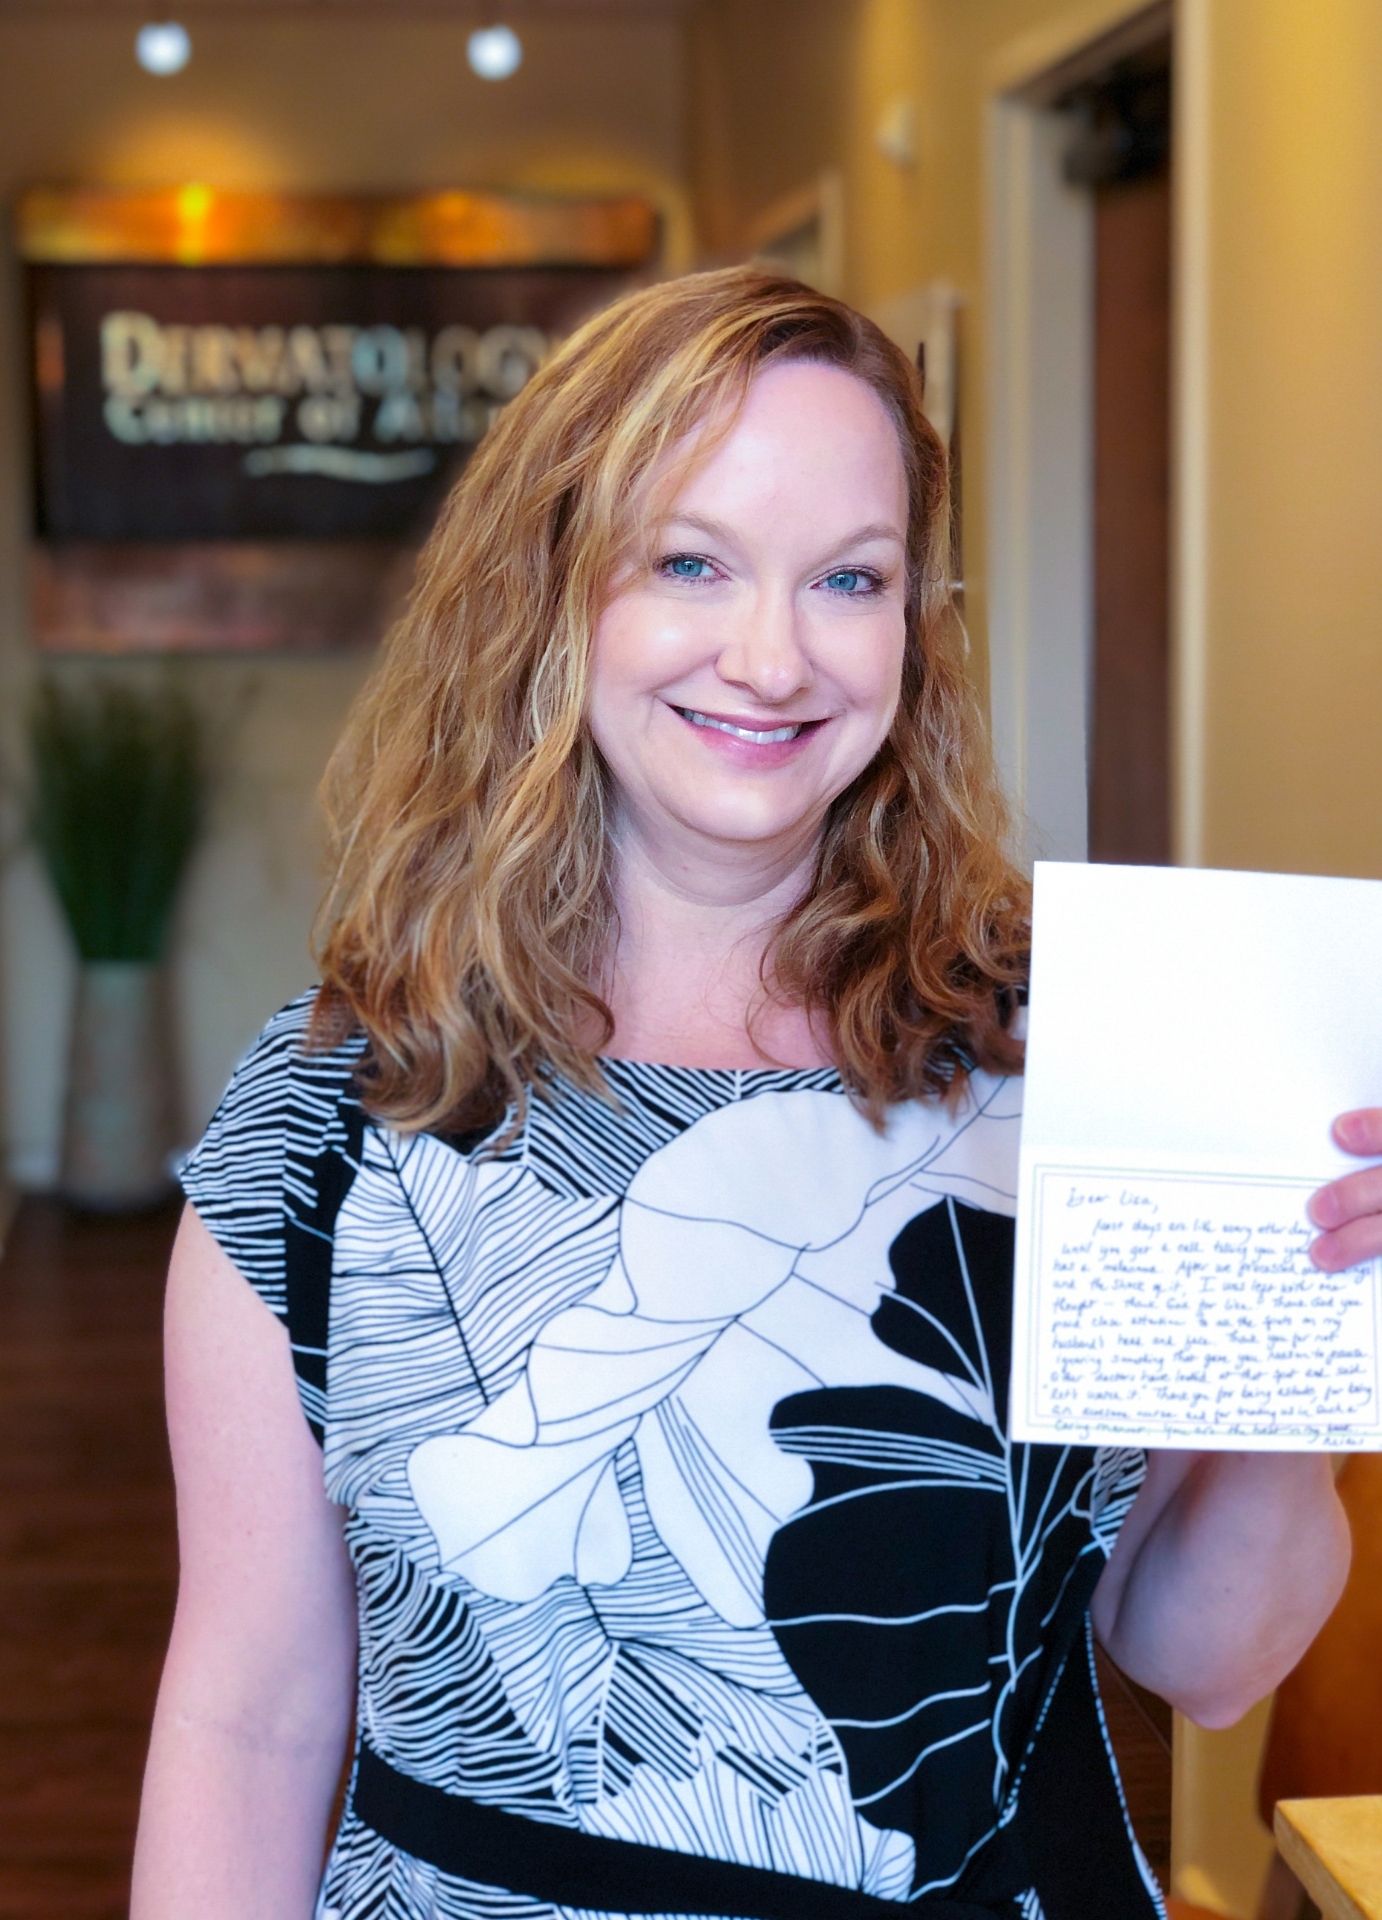 DERMATOLOGY
Center of
Dear Lisa,
Most days are like every other day
until you get a call telling you you
has a melanoma. After we processed
and the shock of it, I was left with one
thought - "Thank God for Lisa." Thank God you
paid close attention to all the spots on my
husband's head and face. Thank you for not
ignoring something that gave you reason to
Other doctors have looked at that spot and said
"let's watch it." Thank you for being astute, for being
an awesome nurse and for treating us in such a
caring manner. You are the best in my book...